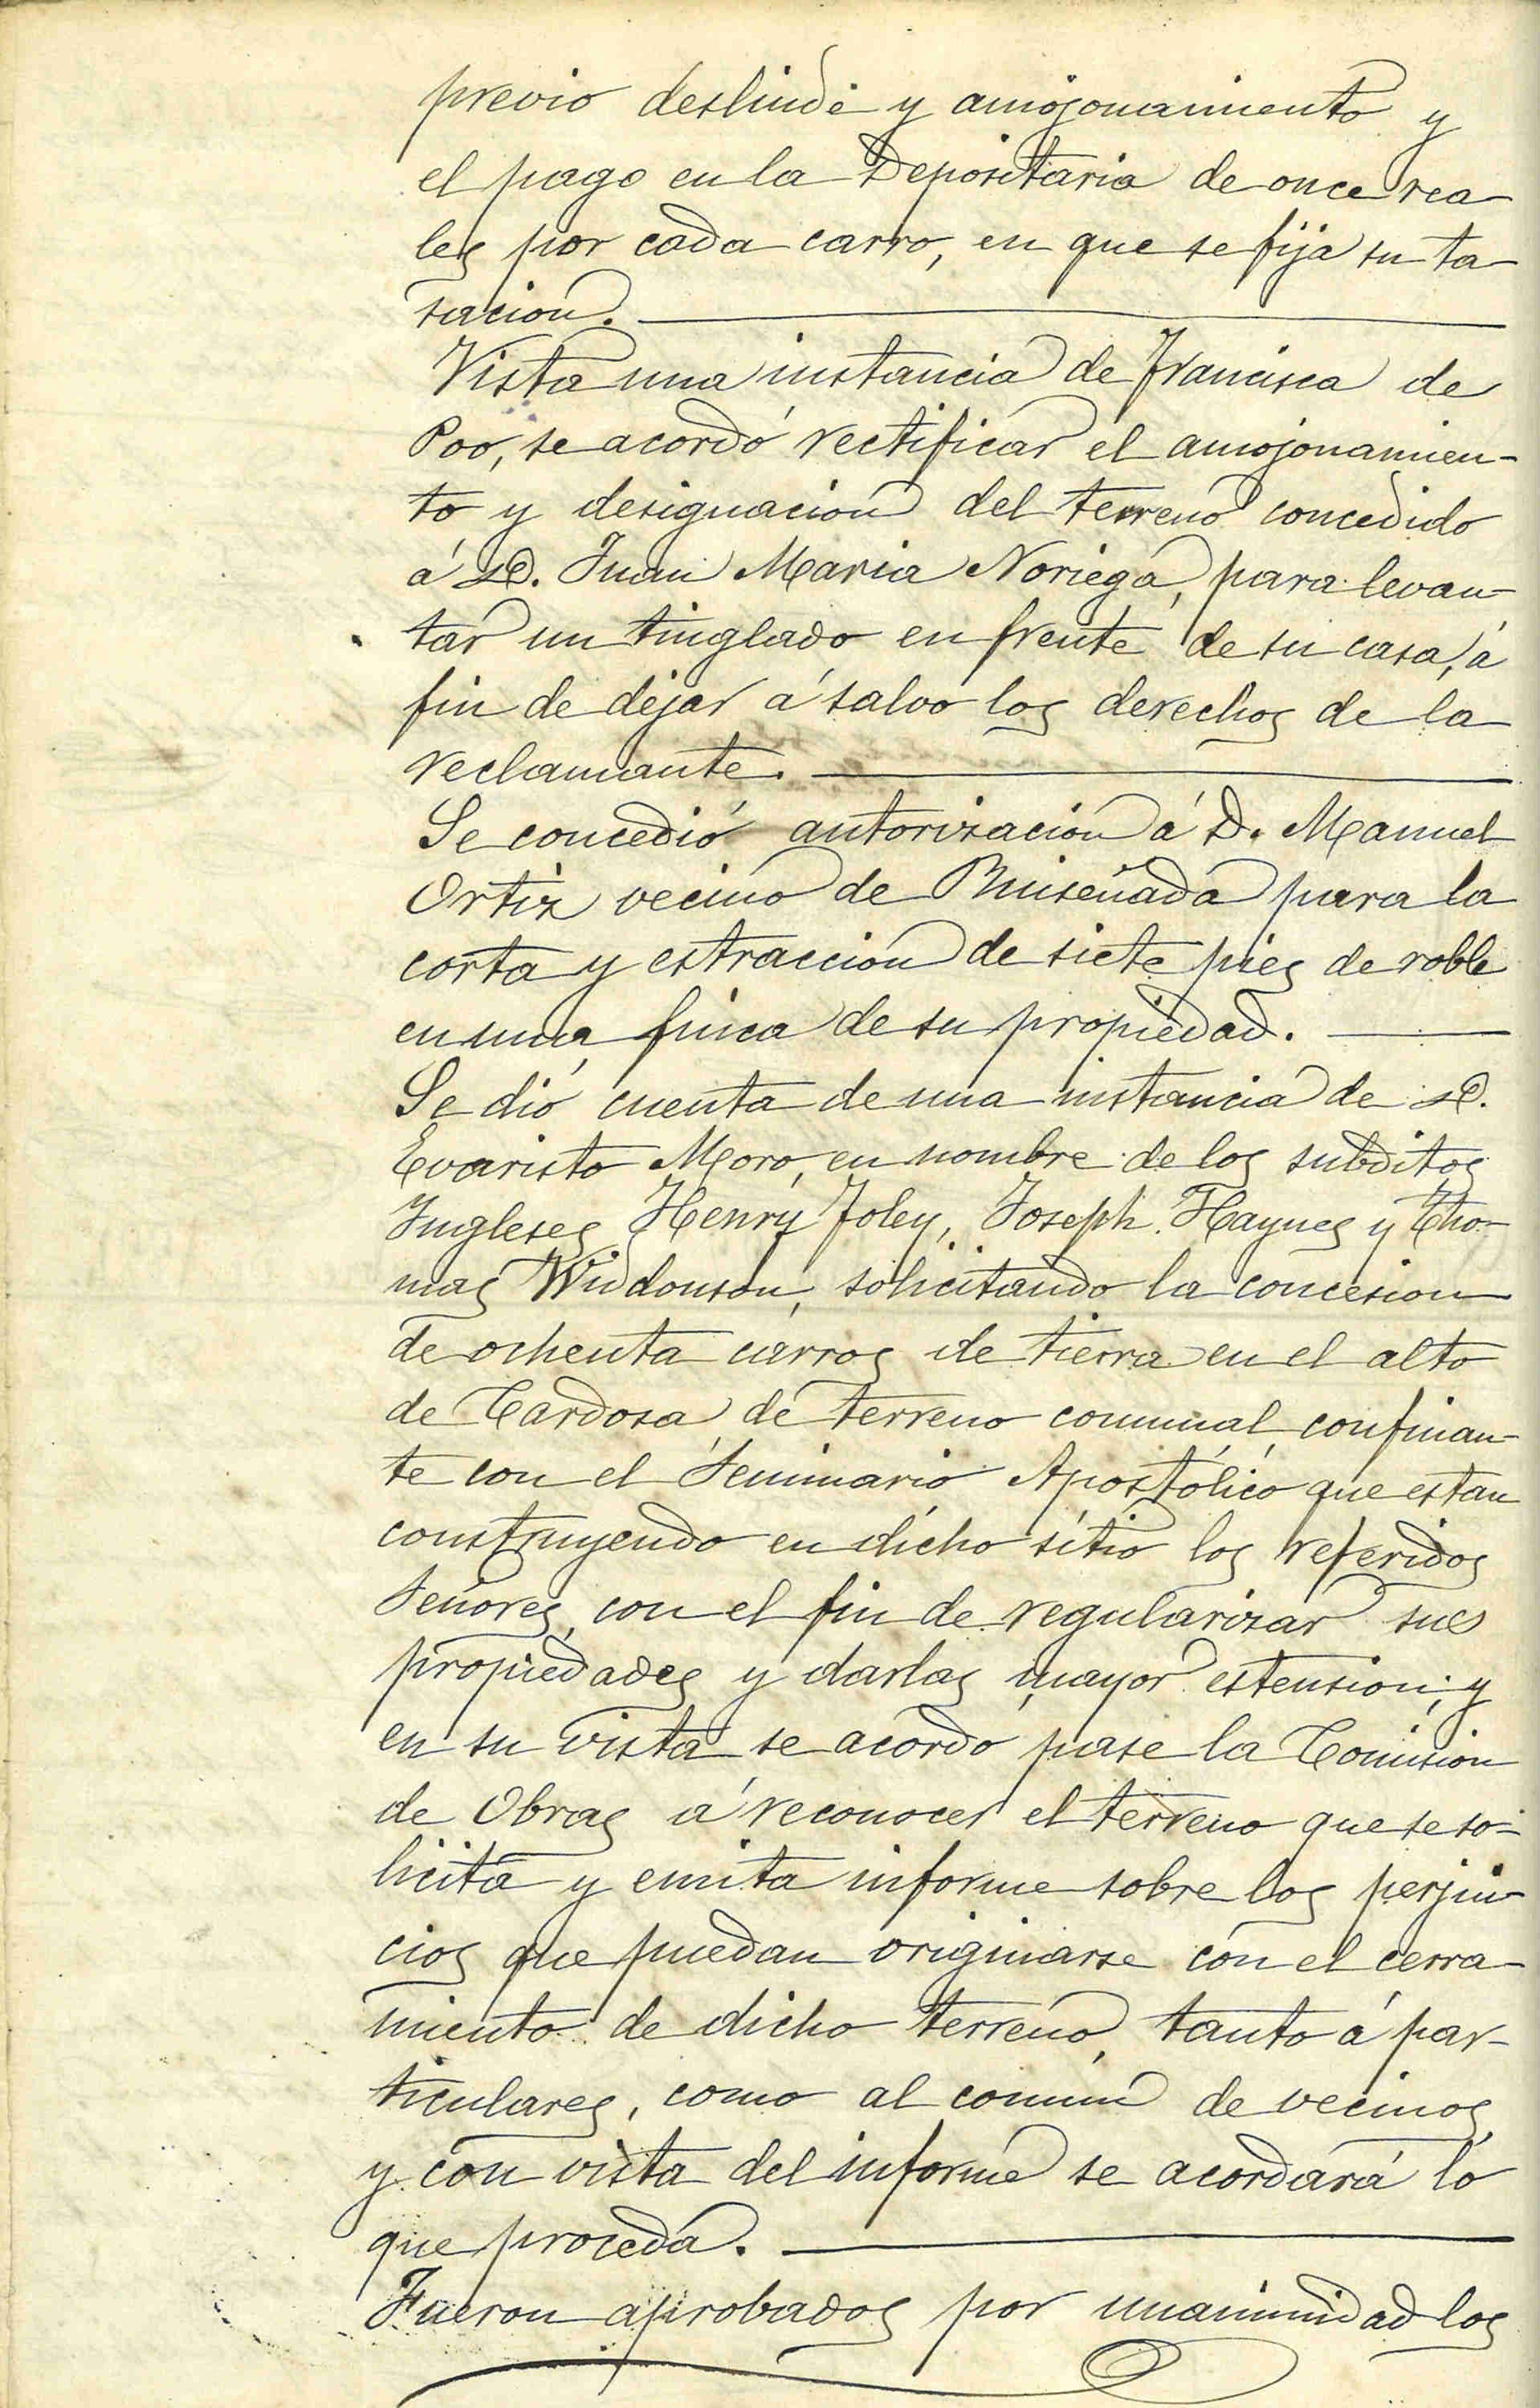 previo deslinde y amojonamiento y
el pago en la Depositaria de once rea-
les por cada carro, en que se fija su ta-
sacion.
Vista una instancia de Francisca de
Poo, se acordó rectificar el amojonamien-
to y designacion del terreno concedido
á D. Juan Maria Noriega, para levan-
tar un tinglado en frente de su casa, á
fin de dejar á salvo los derechos de la
reclamante.
Se concedió autorizacion á D. Manuel
Ortiz vecino de Ruiseñada para la
corta y estraccion de siete pies de roble
en una finca de su propiedad.
Se dió cuenta de una instancia de D.
Evaristo Moro, en nombre de los subditos
Ingleses Henry Joley, Joseph Haynes y Tho-
mas Widonson, solicitando la concesion
de ochenta carros de tierra en el alto
de Cardosa, de terreno comunal, confinan-
te con el Seminario Apostólico que estan
construyendo en dicho sitio los referidos
Señores, con el fin de regularizar sus
propiedades y darlas mayor estension; y
en su vista se acordó pase la Comision
de Obras á reconocer el terreno que se so-
licita y emita informe sobre los perjui-
cios que puedan originarse con el cerra-
miento de dicho terreno, tanto á par-
ticulares, como al comun de vecinos,
y con vista del informe se acordará lo
que proceda.
Fueron aprobados por unanimidad los